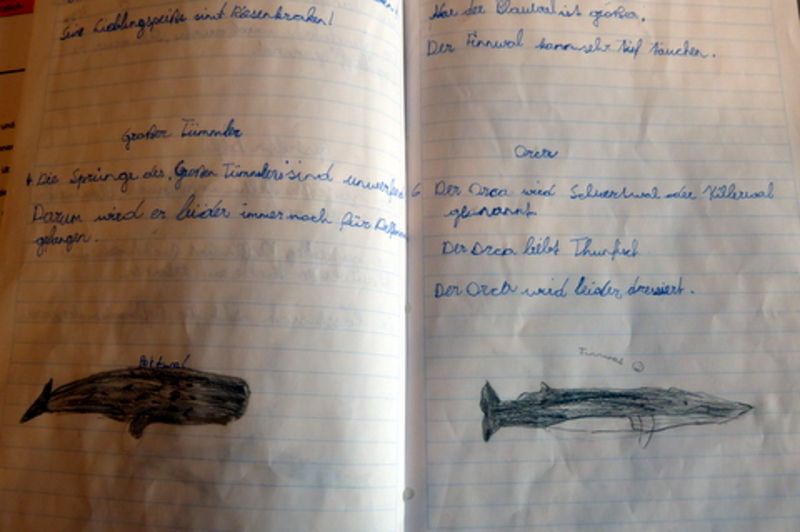 Lieblingspeiße sint Riesenkraken!
Großer Tümmler
4. Die Sprünge des „Großen Tümmlers" sind
Darum wird er leider immer noch für
gefangen.
Pottwal
Nur der Blauwal ist größer.
Der Finnwal kann sehr tief tauchen.
Orca
6. Der Orca wird Schwertwal oder Killerwal
genannt
Der Orca liebt Thunfisch
Der Orca wird leider dressiert.
Finnwal